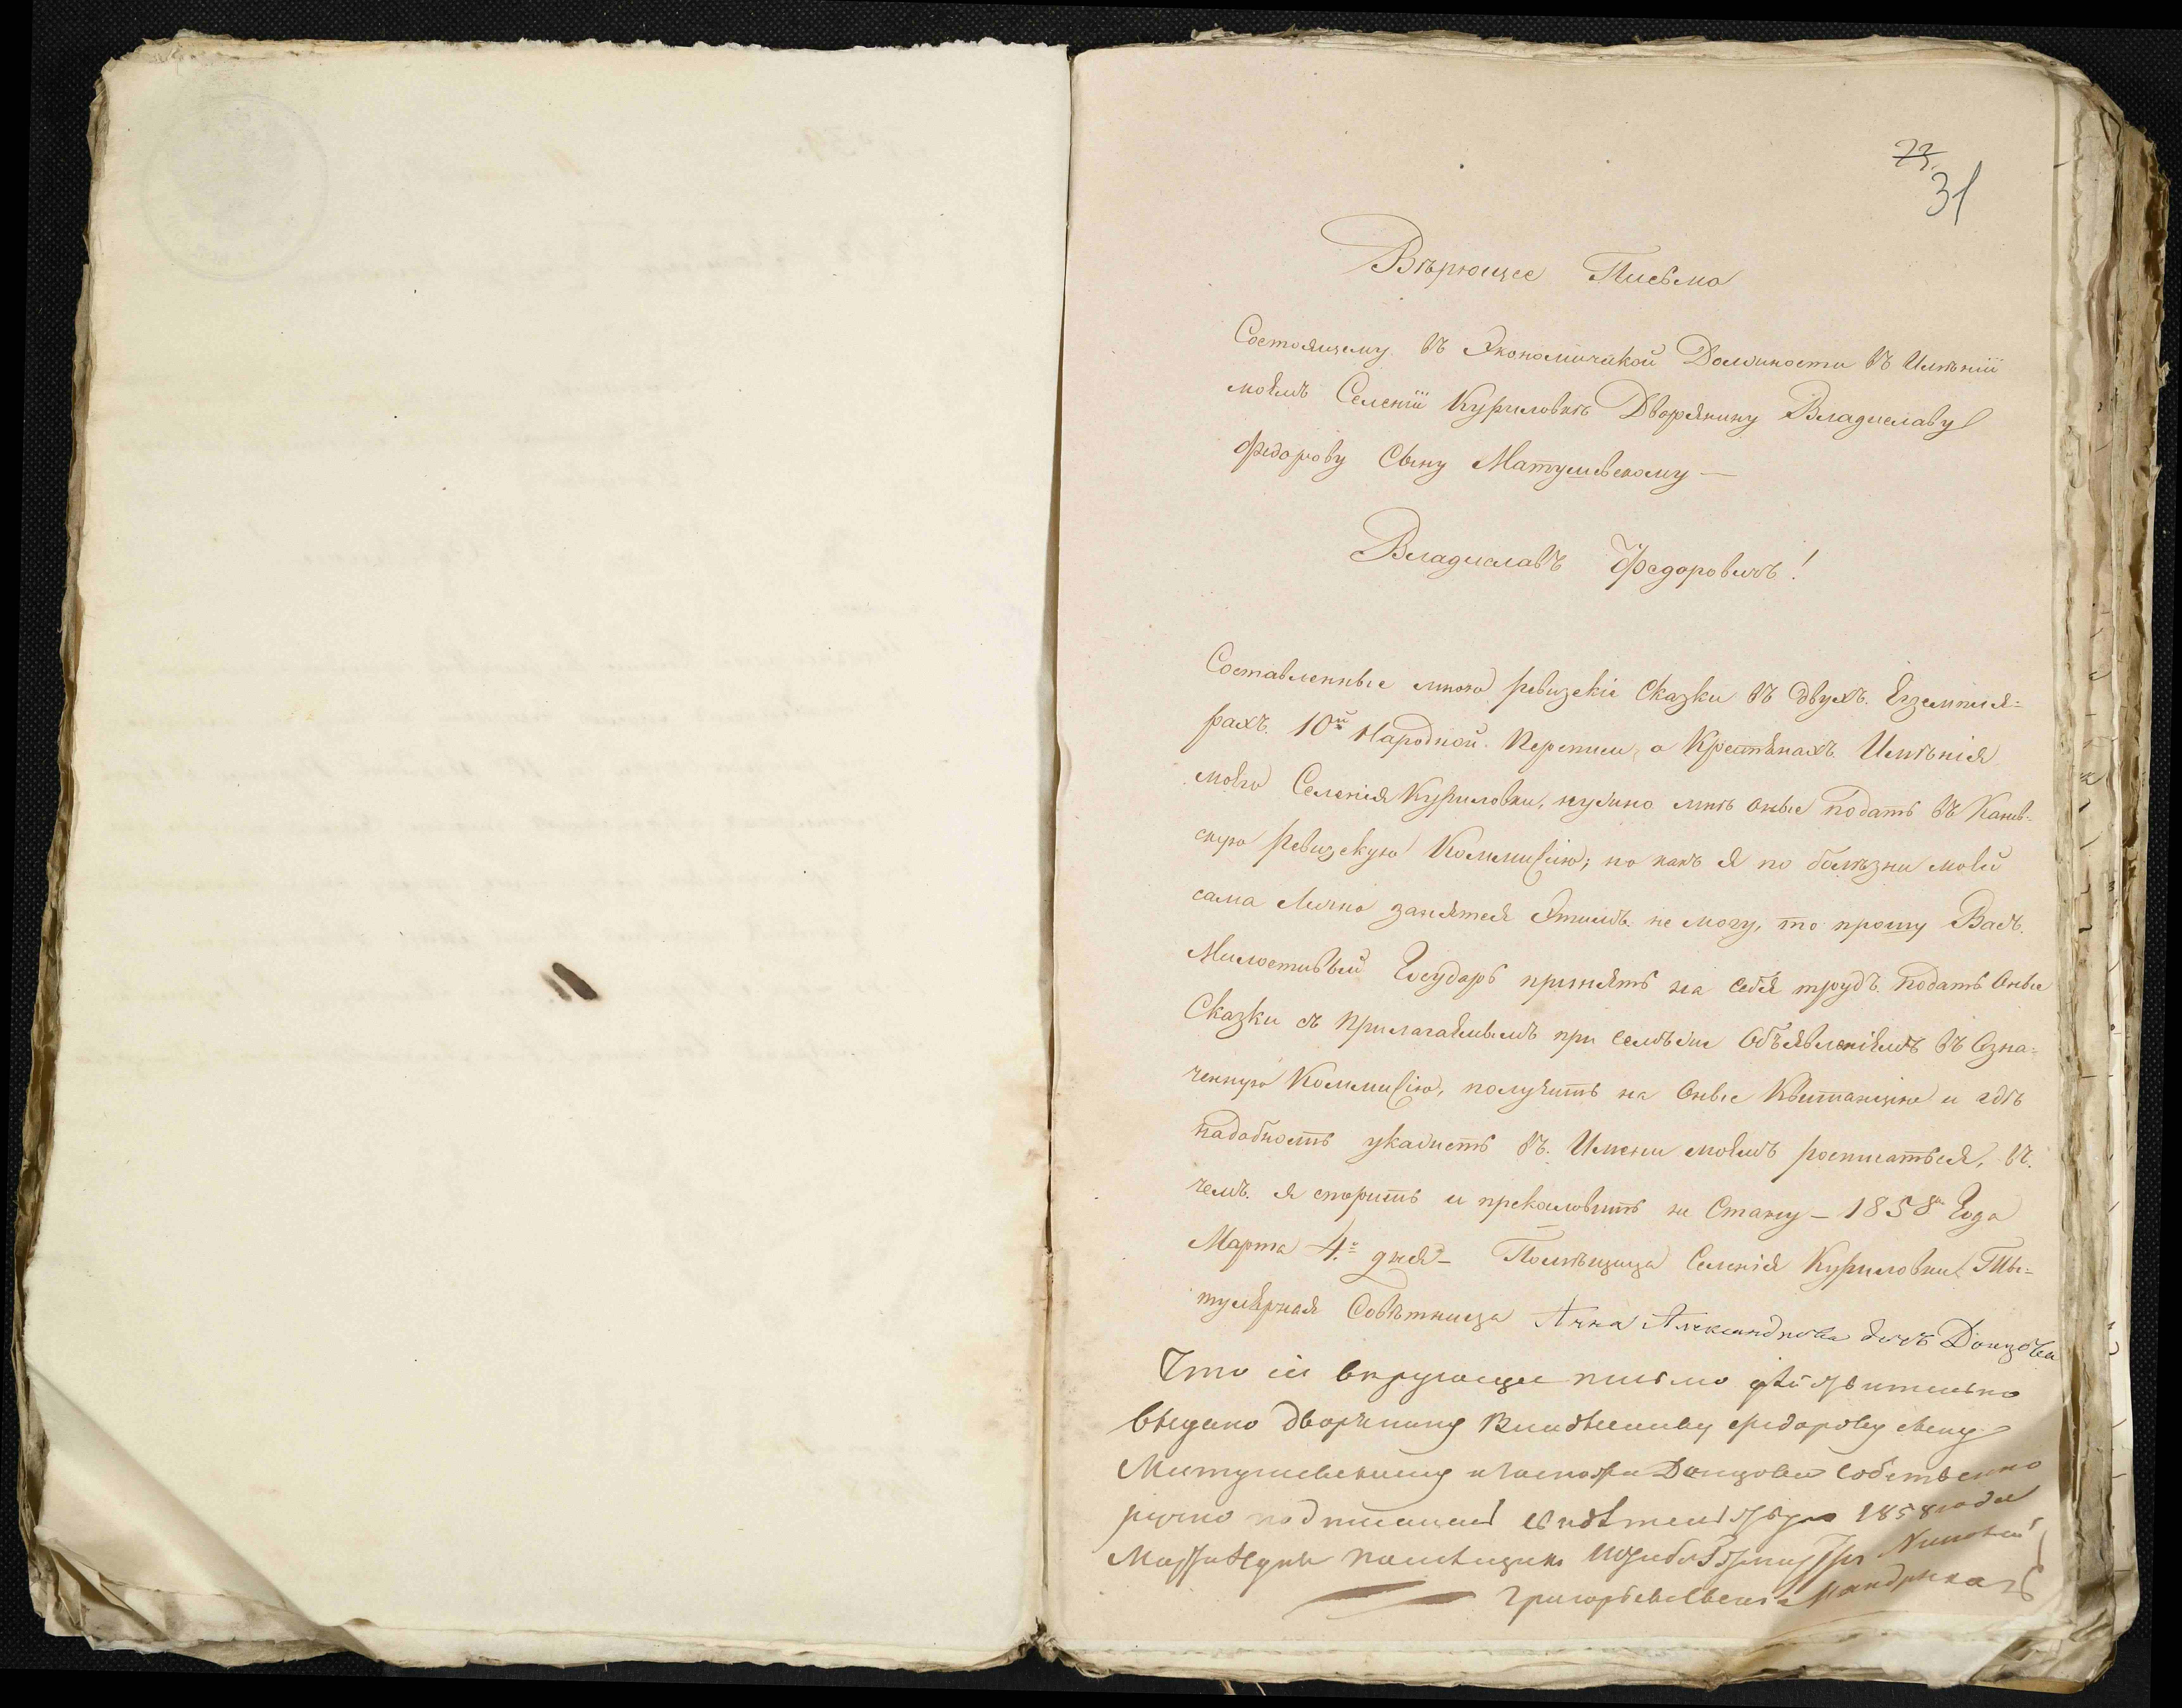 23.
31
Вѣрющее Письмо
Состоящему въ Экономичиской Должности въ Имѣніи
моѣмъ Селеніи Куриловкѣ Дворянину Владиславу
Федорову Сыну Матушевскому —
Владиславъ Федоровичъ!
Составленные мною ревизскіе Сказки въ двухъ Екземпля-
рахъ 10й Народной Переписи, о Крестянахъ Имѣнія
моѣго Селенія Куриловки, нужно мнѣ оные подать въ Канев-
скую Ревизскую Коммисію; но какъ я по болѣзни моѣй
сама Лично занятся Этимъ не могу, то прошу Васъ
Милостивый Государь принять на себя трудъ подать Оные
Сказки съ Прилагаѣмымъ при семъ Объявленіямъ въ Озна-
ченную Коммисію, получить на Оные Квитанцію и гдѣ
надобность укажетъ въ Имени моѣмъ росписатьея, въ
чемъ я спорить и прекословить не Стану — 1858го Года
Марта 4го дня — Помѣщица Селенія Куриловки Ты-
тулярная Совѣтница Анна Александрова дочь Донцова
Что сіе вѣрующее письмо дѣйствительно
выдано дворянину Владиславу Федорову сыну
Матушевскому и Донцовой собственно
ручно подписано свидѣтельствую 1858 года
Марта 4 дня помѣщикъ
Григорьевъ Сынъ Мандрыка